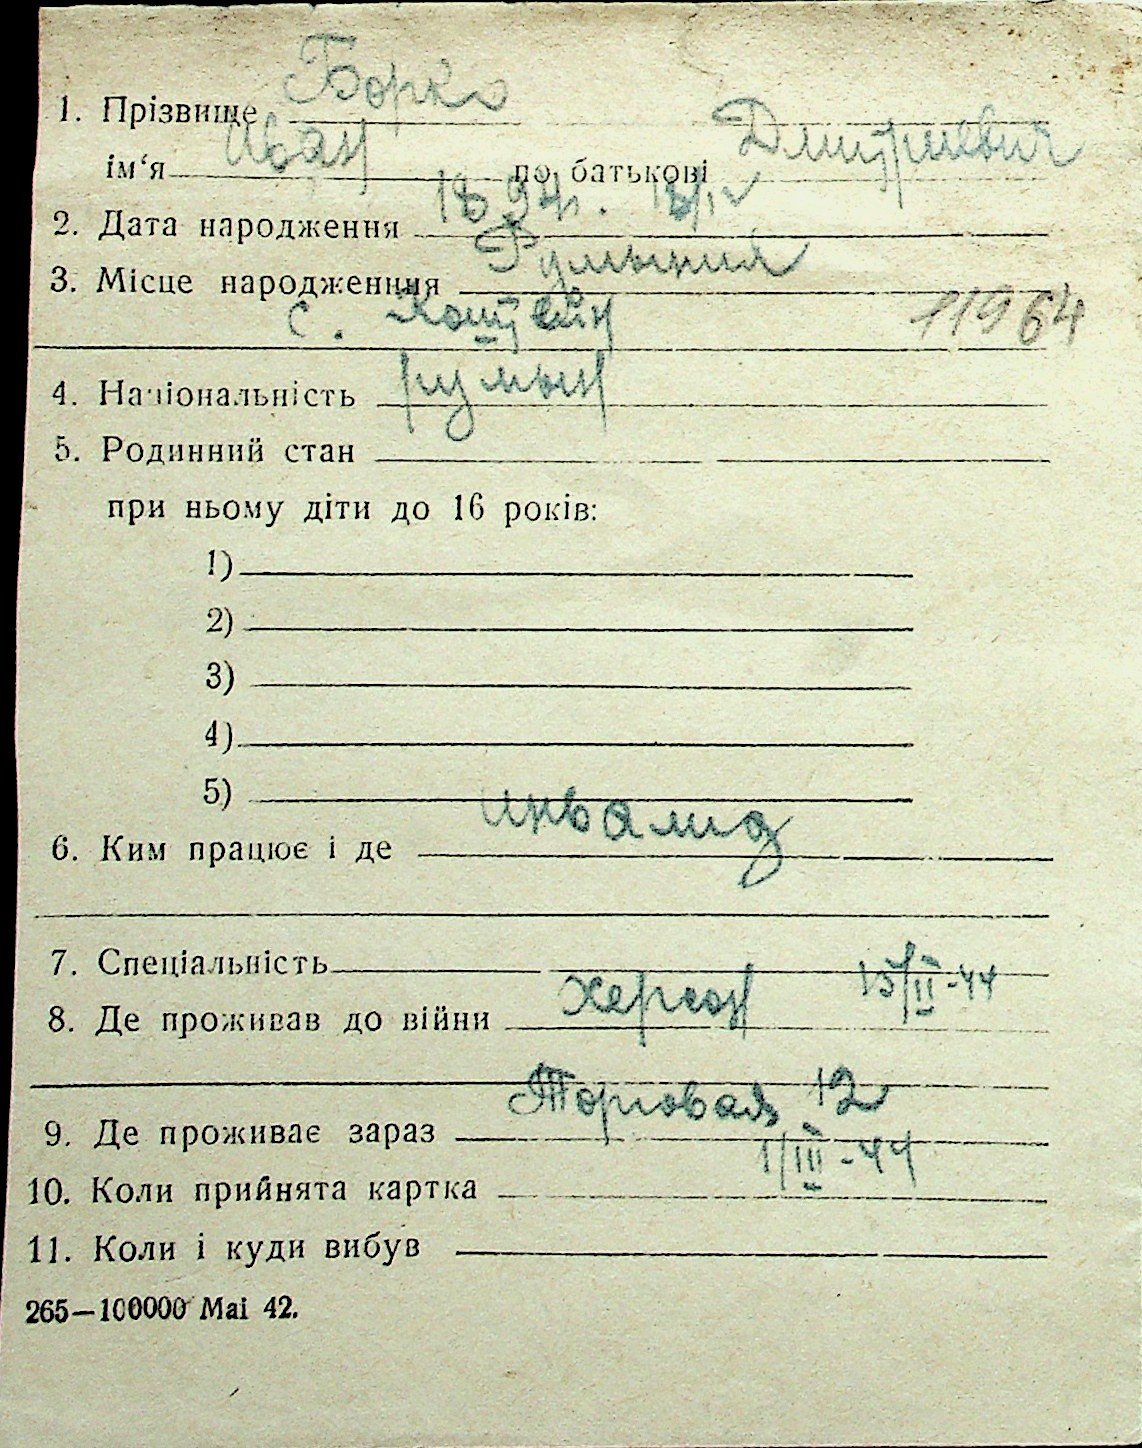 Борко
1. Прізвище
Иван Дмитриевич
ім‘я по батькові
1894г.
2. Дата народження
Румыния
3. Місце народженння
с. 11964
румын
4. Національність
5. Родинний стан
при ньому діти до 16 років:
1)
2)
3)
4)
5)
инвалид
6. Ким працює і де
7. Спеціальність
Херсон 15/II-44
8. Де проживав до війни
Торговая 12
9. Де проживає зараз
1/III-44
10. Коли прийнята картка
11. Коли і куди вибув
265—100000 Mai 42.